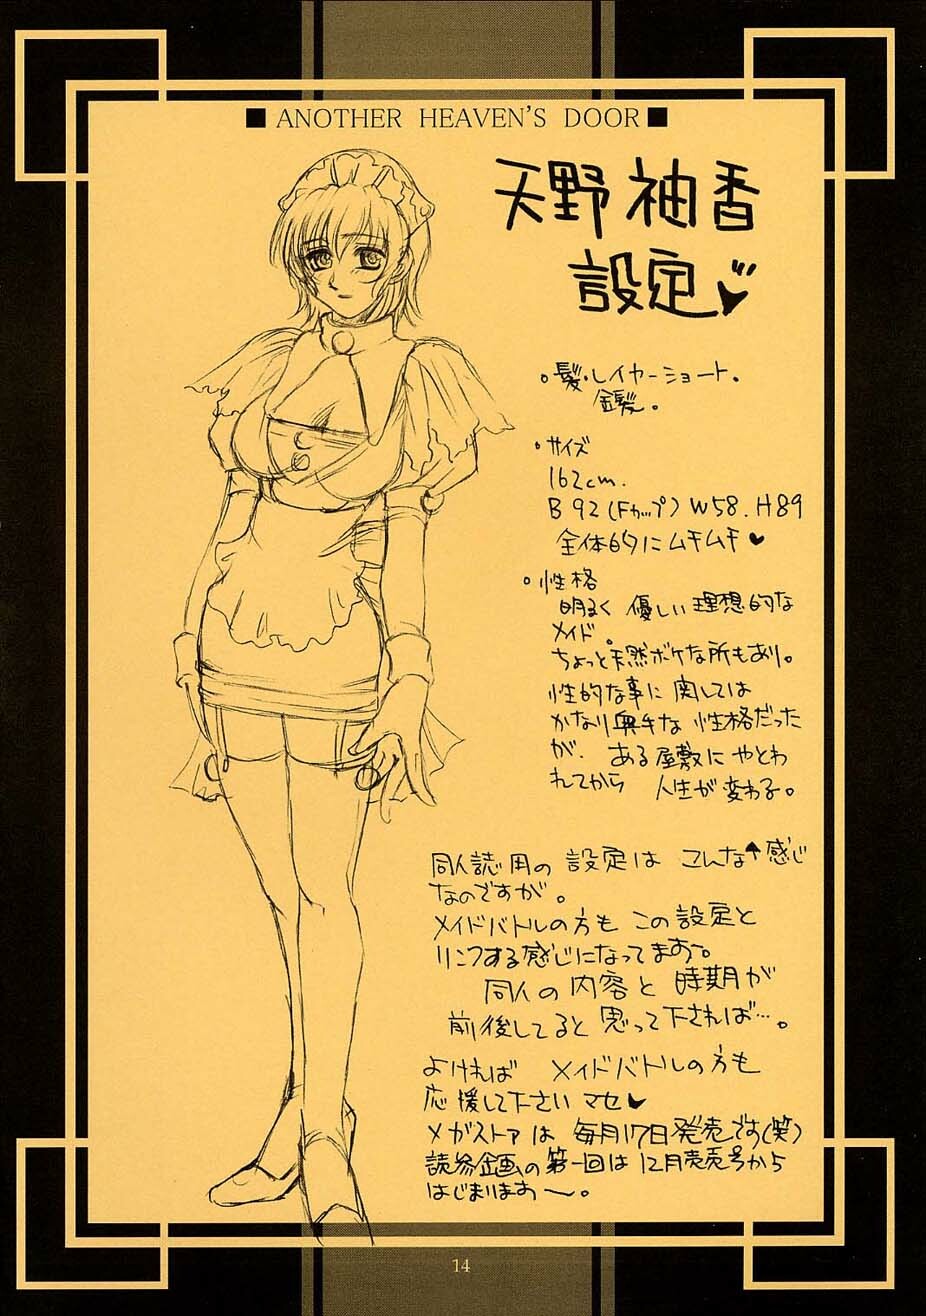 ■ ANOTHER HEAVEN'S DOOR ■
天野 袖香
設定
・髪・レイヤーショート。
金髪。
・サイズ
162cm.
B 92 (Fカップ) W58. H89
全体的にムチムチ♥
・性格
明るく 優しい 理想的な
メイド。
ちょっと天然ボケな所もあり。
性的な事に 関しては
かなり奥手な 性格だった
が、ある屋敷に やとわ
れてから 人生が 変わる。
同人誌用の 設定は こんな↑感じ
なのですが。
メイドバトルの方も この設定と
リンクする感じになってます。
同人の 内容 と 時期が
前後してると 思って下されば…。
よければ メイドバトルの方も
応援して下さいマセ♥
メガストアは 毎月17日発売です(笑)
読参企画の 第一回は 12月売号から
はじまりまお〜。
14